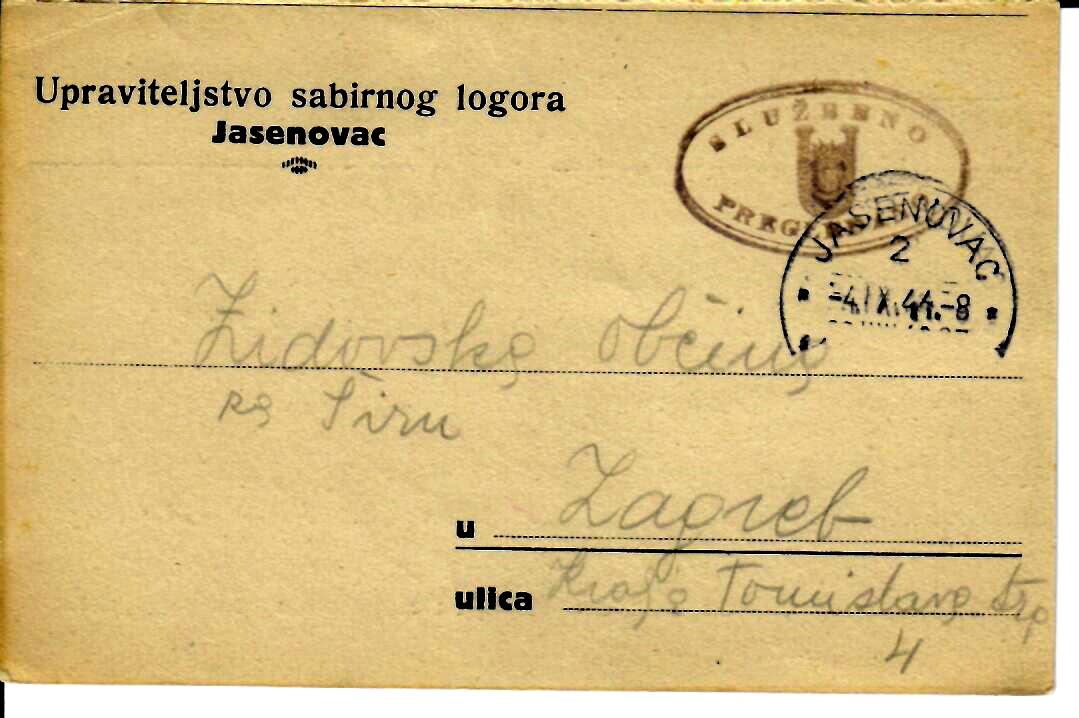 Upraviteljstvo sabirnog logora
Jasenovac
SLUŽBENO
PREGLEDANO
JASENOVAC
2
-4.IX.44.-8
Židovska Občina
za Širu
u Zagreb
ulica Kralja Tomislava trg
4